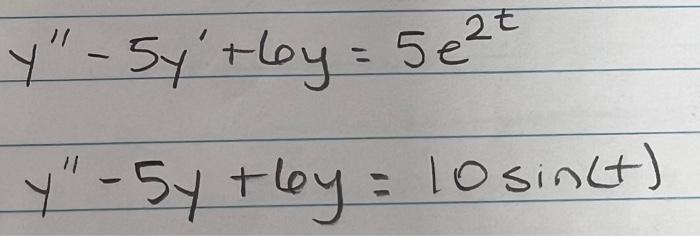 y'' - 5y' + 6y = 5e^{2t}
y'' - 5y + 6y = 10 sin(t)